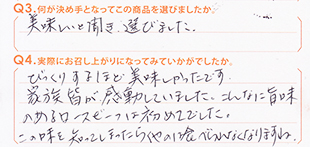 Q3.何が決め手となってこの商品を選びましたか。
美味しいと聞き、選びました。
Q4.実際にお召し上がりになってみていかがでしたか。
びっくりするほど美味しかったです
家族皆が感動していました。こんなに旨味
のあるローストビーフは初めてでした。
この味を知ってしまったら他のは食べられなくなりますね。